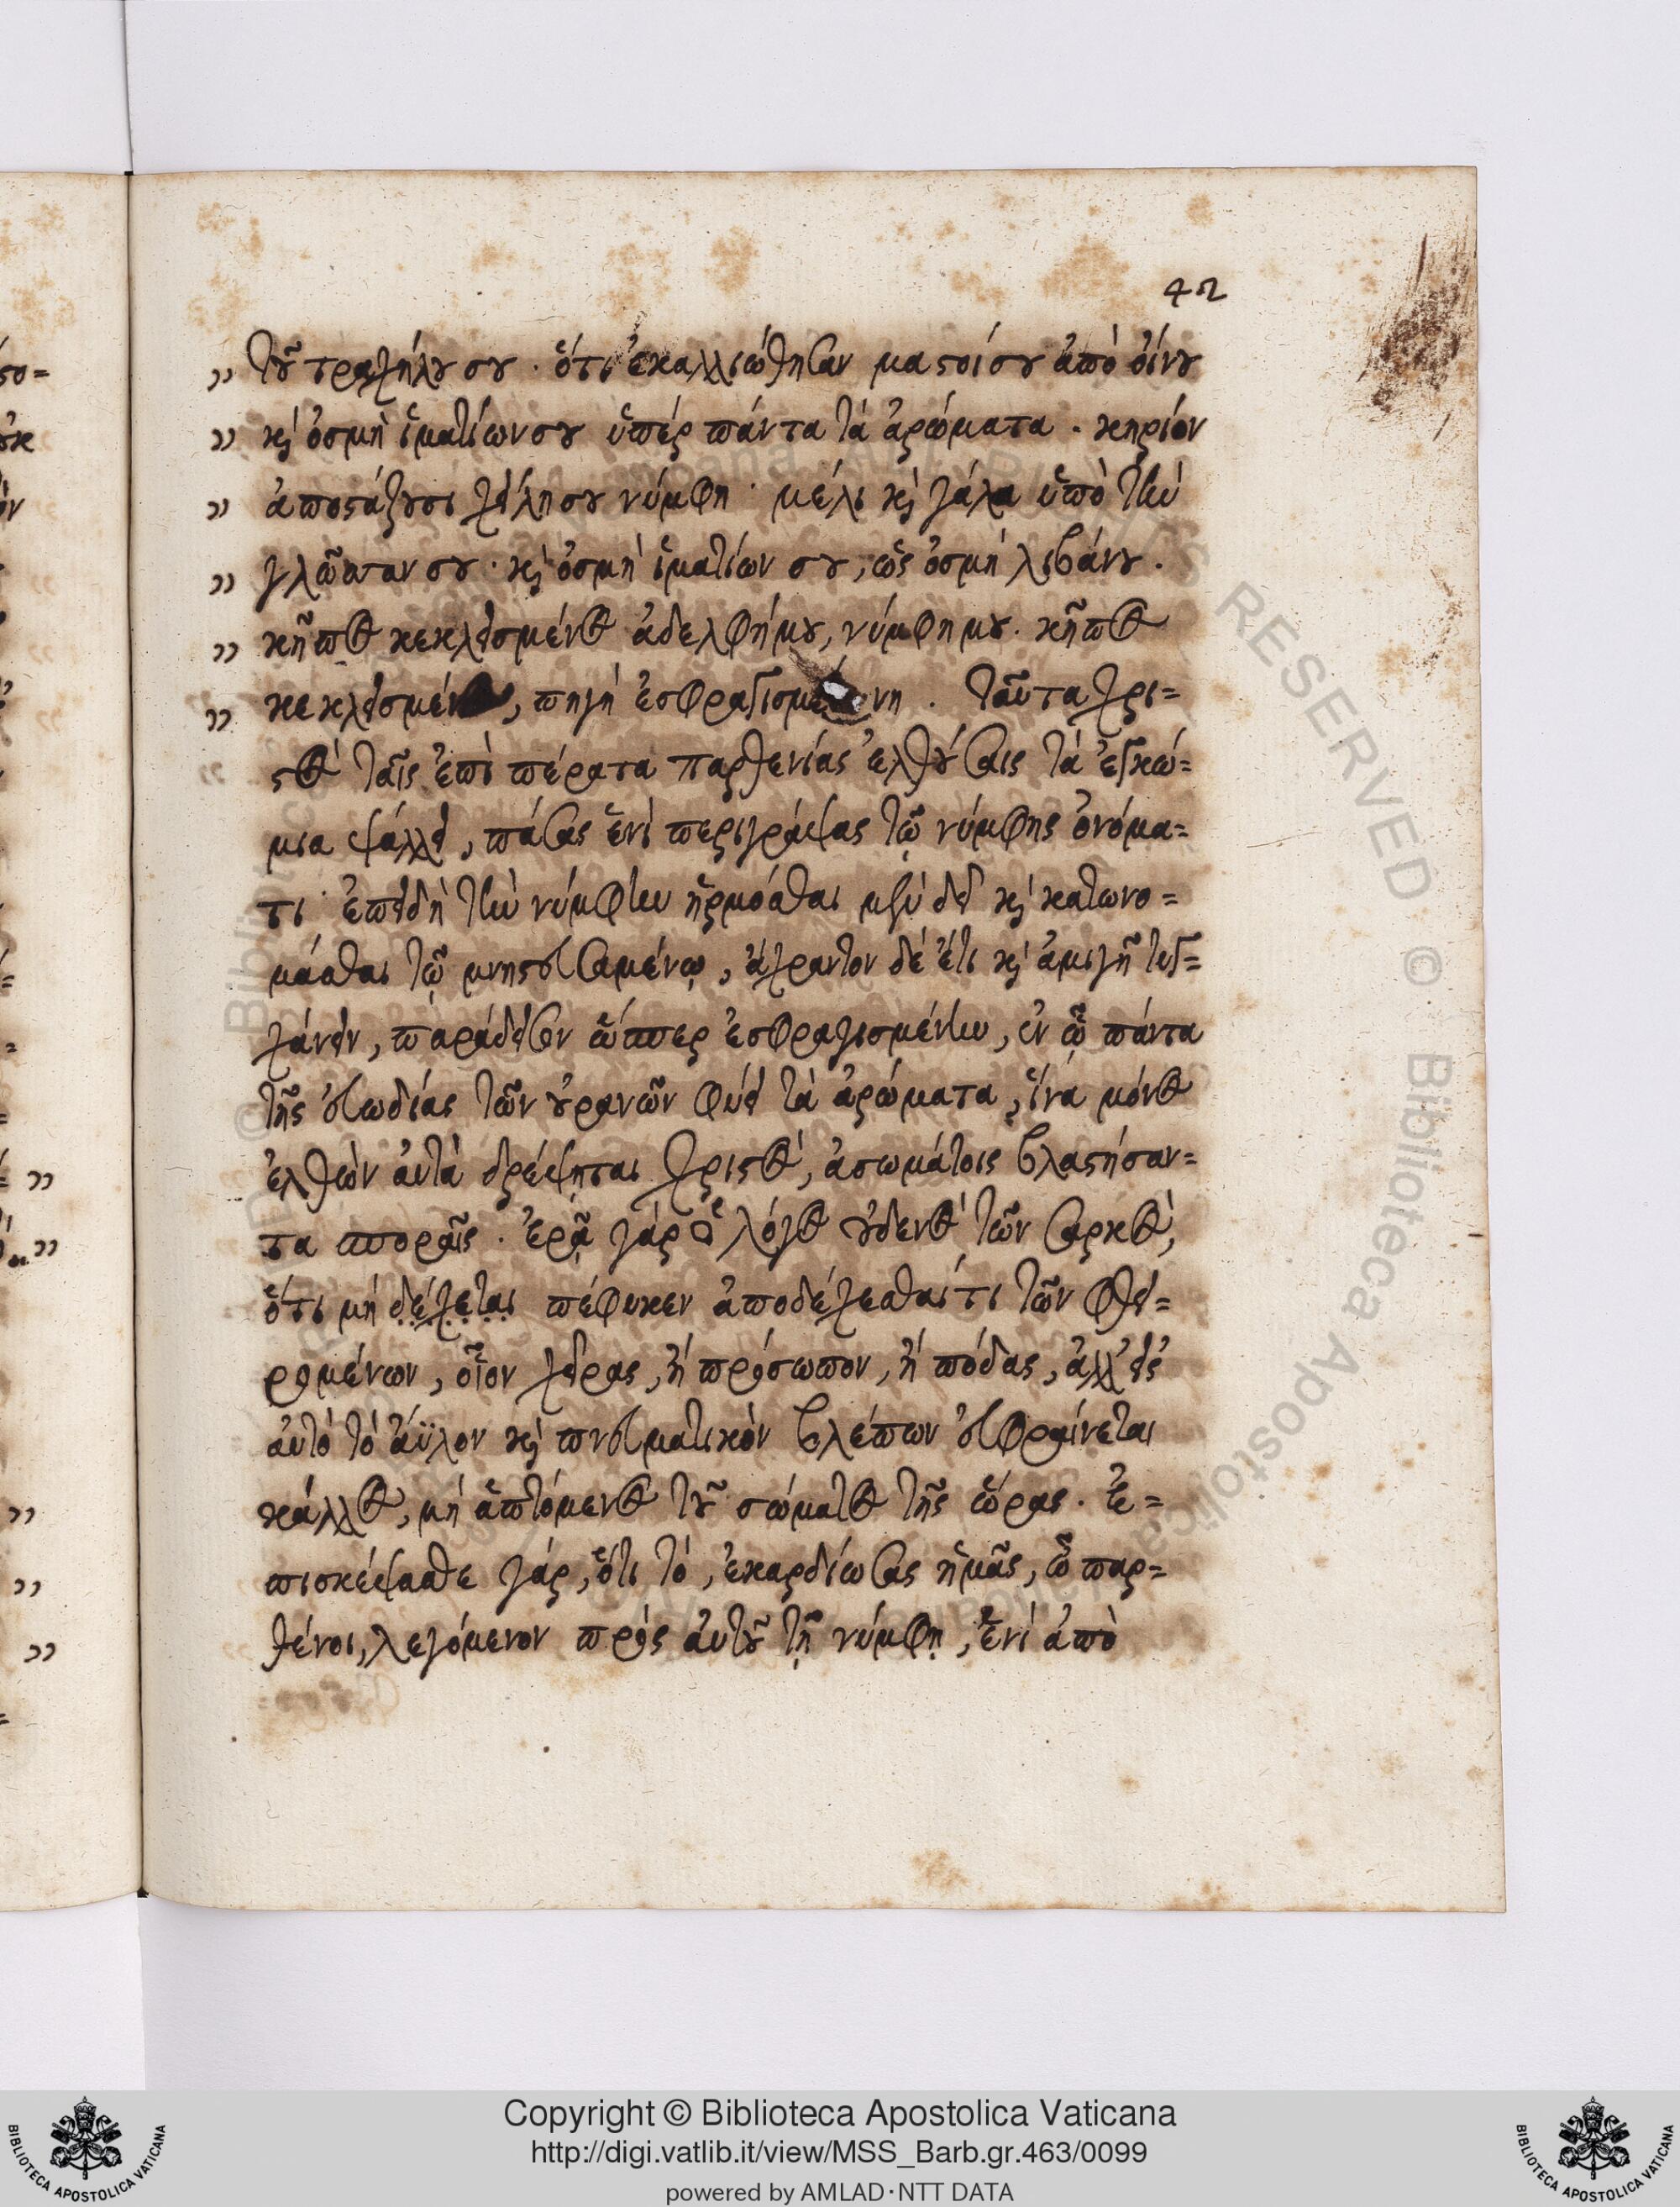 42
„ τοῦ τραχήλου σου. ὅτι ἐκαλλιώθησαν μαστοί σου ἀπὸ οἴνου
„ καὶ ὀσμὴ ἱματίων σου ὑπέρ πάντα τὰ ἀρώματα. κηρίον
„ ἀποστάζουσι χείλη σου νύμφη· μέλι καὶ γάλα ὑπὸ τὴν
„ γλῶτταν σου· καὶ ὀσμὴ ἱματίων σου, ὡς ὀσμὴ λιβάνου.
„ κῆπος κεκλεισμένος ἀδελφή μου, νύμφη μου. κῆπος
„ κεκλεισμένος, πηγή ἐσφραγισμένη. Ταῦτα χρι=
στὸς ταῖς ἐπὶ πέρατα παρθενίας ἐλθούσαις τὰ ἐγκώ=
μια ψάλλει, πάσας ἑνὶ περιγράψας τῷ νύμφης ὀνόμα=
τι· ἐπειδὴ τὴν νύμφην ἡρμόσθαι δεῖ καὶ κατωνο=
μάσθαι τῷ μνηστευσαμένῳ, ἄχραντον δὲ ἔτι καὶ ἀμιγῆ τυγ=
χάνειν, παράδεισον ὥσπερ ἐσφραγισμένην, ἐν ᾧ πάντα
τῆς εὐωδίας τῶν οὐρανῶν φύει τὰ ἀρώματα, ἵνα μόνος
ἐλθὼν αὐτὰ δρέψηται χριστὸς, ἀσωμάτοις βλαστήσαν=
τα σποραῖς. ἐρᾷ γὰρ ὁ λόγος οὐδενὸς τῶν σαρκὸς,
ὅτι μή δέχεται πέφυκεν ἀποδέχεσθαί τι τῶν φθει=
ρομένων, οἷον χεῖρας, ἢ πρόσωπον, ἢ πόδας, ἀλλ᾽ εἰς
αὐτὸ τὸ ἄϋλον καὶ πνευματικὸν βλέπων εὐφραίνεται
κάλλος, μὴ ἁπτόμενος τοῦ σώματος τῆς ὥρας. ἐ=
πισκέψασθε γάρ, ὅτι τὸ, ἐκαρδίωσας ἡμᾶς, ὦ παρ=
θένοι, λεγόμενον πρὸς αὐτοῦ τῇ νύμφῃ, ἑνὶ ἀπὸ
Copyright © Biblioteca Apostolica Vaticana
http://digi.vatlib.it/view/MSS_Barb.gr.463/0099
powered by AMLAD·NTT DATA
BIBLIOTECA APOSTOLICA VATICANA
BIBLIOTECA APOSTOLICA VATICANA